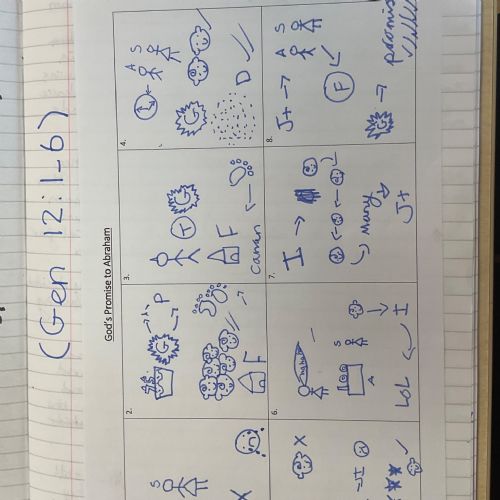 (Gen 12:1-6)
God's Promise to Abraham
S
X
2.
G
P
F
3.
T
G
F
Canan
4.
A S
G
D
X
I X
6.
hahaha
S
A
LOL I
7.
I
Many
J+
8.
J+ A S
F
G
promis